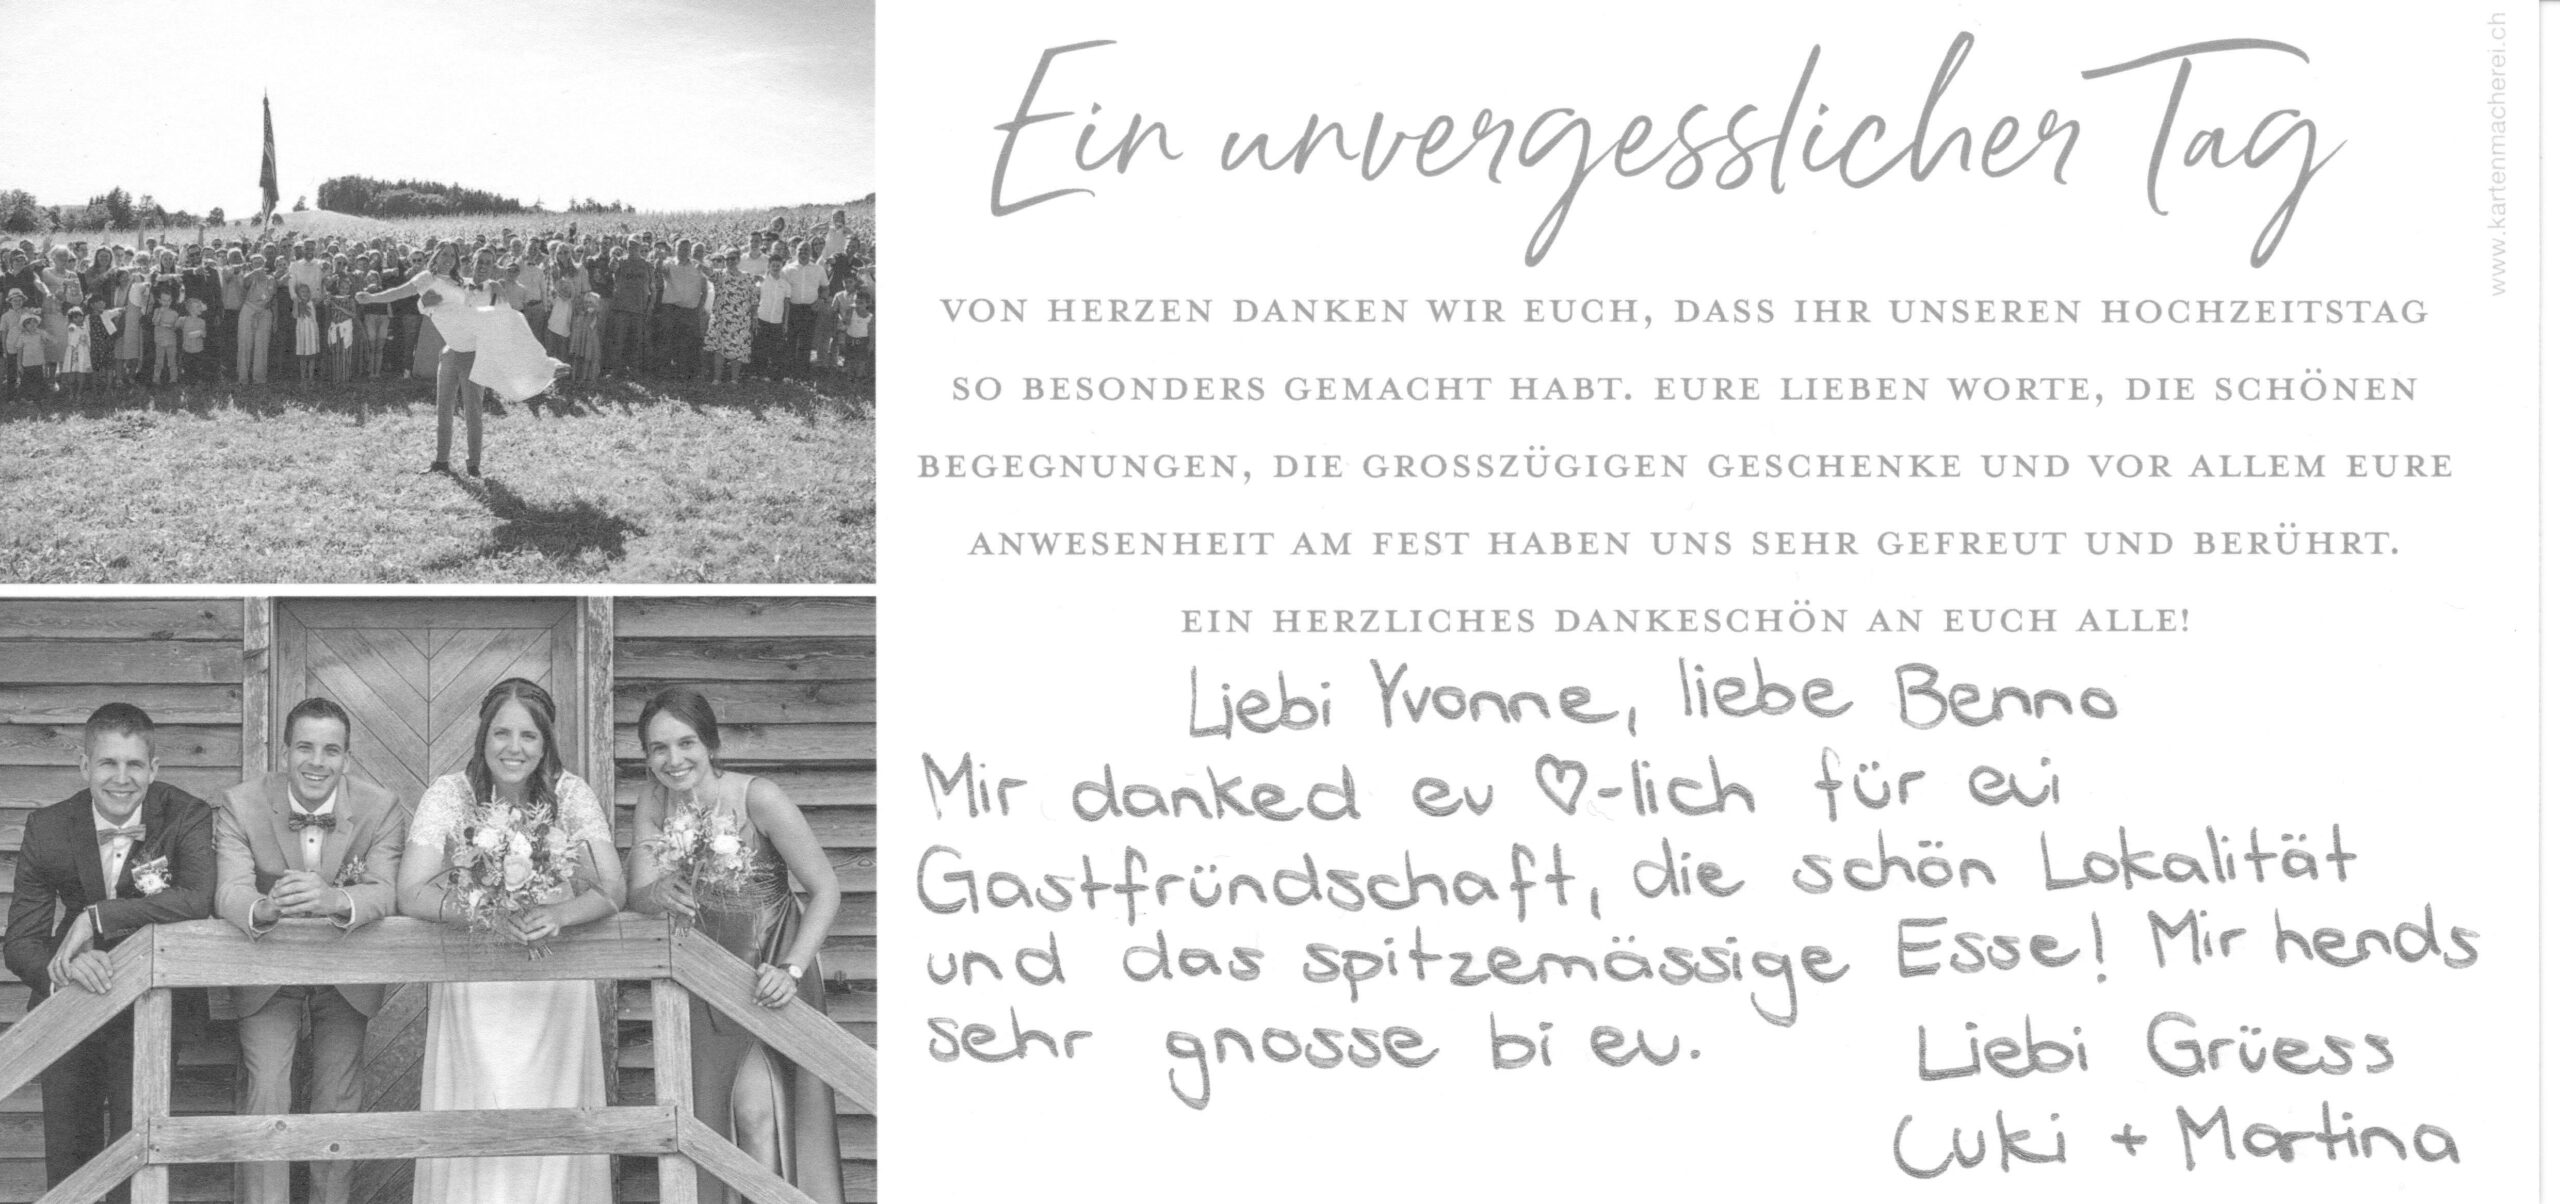 Ein unvergesslicher Tag
VON HERZEN DANKEN WIR EUCH, DASS IHR UNSEREN HOCHZEITSTAG
SO BESONDERS GEMACHT HABT. EURE LIEBEN WORTE, DIE SCHÖNEN
BEGEGNUNGEN, DIE GROSSZÜGIGEN GESCHENKE UND VOR ALLEM EURE
ANWESENHEIT AM FEST HABEN UNS SEHR GEFREUT UND BERÜHRT.
EIN HERZLICHES DANKESCHÖN AN EUCH ALLE!
Liebi Yvonne, liebe Benno
Mir danked eu ♡-lich für eui
Gastfründschaft, die schön Lokalität
und das spitzemässige Esse! Mir hends
sehr gnosse bi eu.
Liebi Grüess
Cuki + Martina
www.kartenmacherei.ch